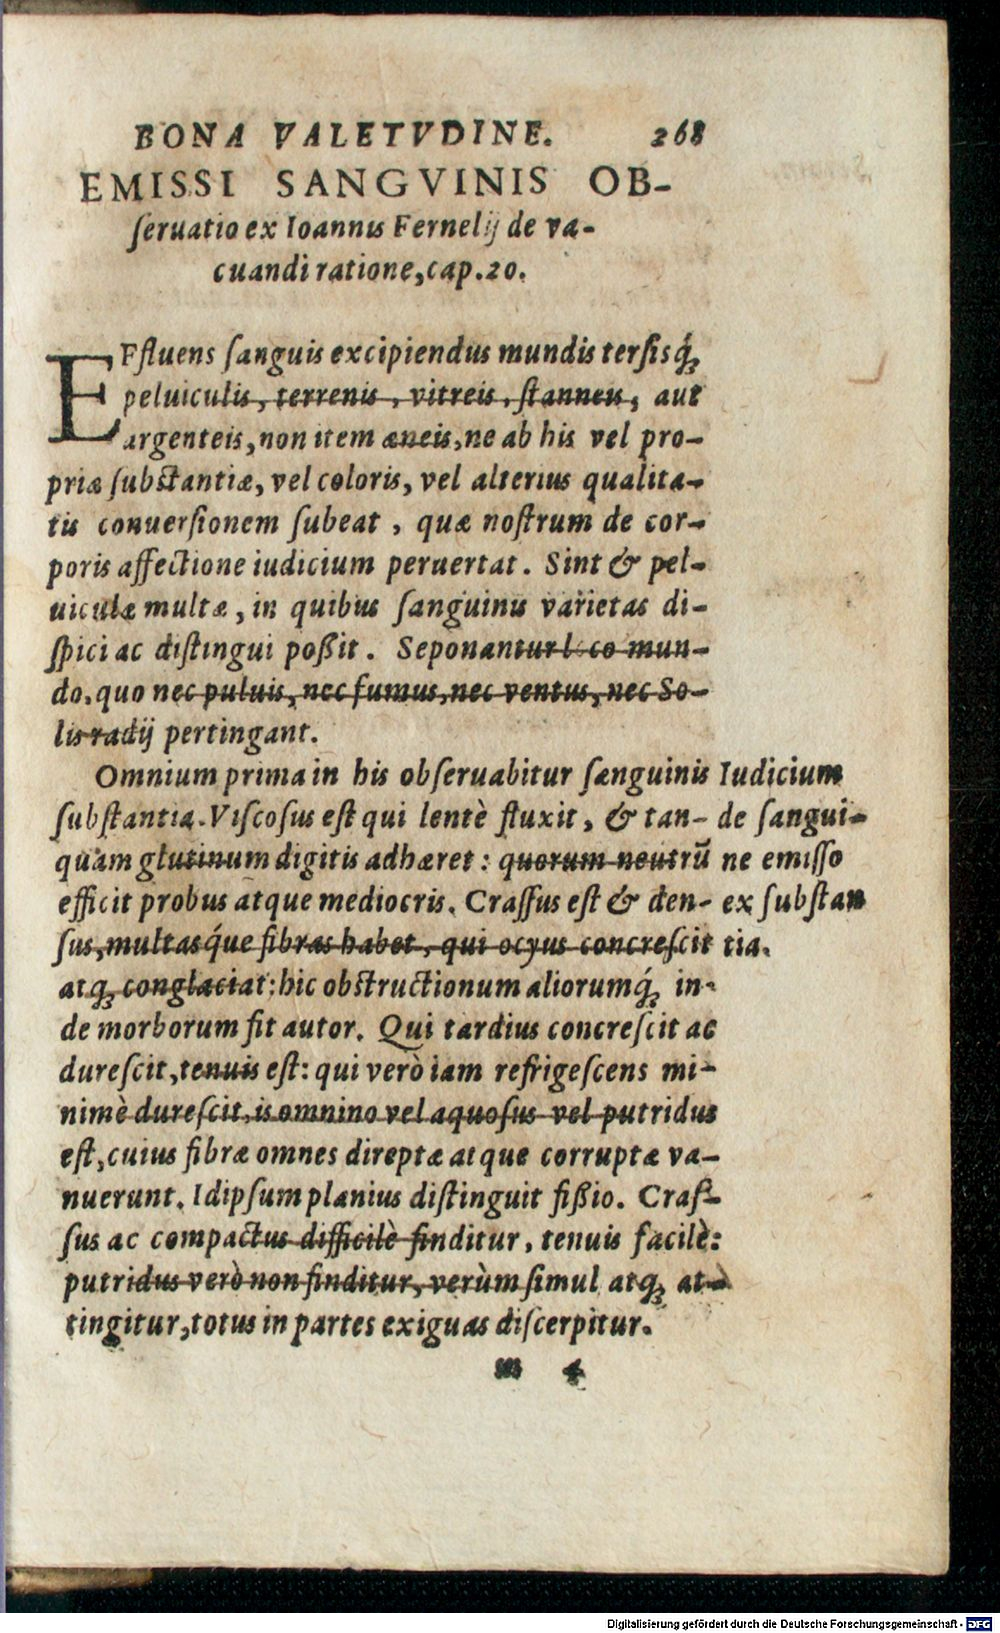 BONA VALETVDINE. 268
EMISSI SANGVINIS OB-
ſeruatio ex Ioannis Fernelij de va-
cuandi ratione, cap. 20.
EFfluens ſanguis excipiendus mundis terſisq́;
peluiculis, terrenis, vitreis, ſtanneis, aut
argenteis, non item æneis, ne ab his vel pro-
priæ ſubſtantiæ, vel coloris, vel alterius qualita-
tis conuerſionem ſubeat, quæ noſtrum de cor-
poris affectione iudicium peruertat. Sint & pel-
uiculæ multæ, in quibus ſanguinis varietas di-
ſpici ac diſtingui poßit. Seponantur loco mun-
do, quo nec puluis, nec fumus, nec ventus, nec So-
lis radij pertingant.
Omnium prima in his obſeruabitur ſanguinis
ſubſtantia. Viſcoſus eſt qui lentè fluxit, & tan-
quàm glutinum digitis adhæret: quorum neutrū
efficit probus atque mediocris. Craſſus eſt & den-
ſus, multasq́ue fibras habet, qui ocyus concreſcit
atq; conglaciat: hic obſtructionum aliorumq́; in-
de morborum fit autor. Qui tardius concreſcit ac
dureſcit, tenuis eſt: qui verò iam refrigeſcens mi-
nimè dureſcit, is omnino vel aquoſus vel putridus
eſt, cuius fibræ omnes direptæ atque corruptæ va-
nuerunt. Id ipſum planius diſtinguit fißio. Craſ-
ſus ac compactus difficilè finditur, tenuis facilè:
putridus verò non finditur, verùm ſimul atq; at-
tingitur, totus in partes exiguas diſcerpitur.
m 4
Iudicium
de ſangui-
ne emiſſo
ex ſubſtan
tia.
Digitalisierung gefördert durch die Deutsche Forschungsgemeinschaft - DFG